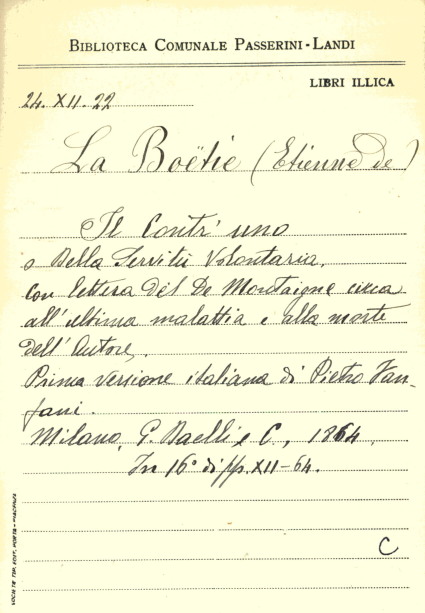 BIBLIOTECA COMUNALE PASSERINI-LANDI
LIBRI ILLICA
24. XII. 22
La Boëtie (Etienne de)
Il Contr' uno
o Della Servitù Volontaria.
Con lettera del De Montaigne circa
all'ultima malattia e alla morte
dell'Autore.
Prima versione italiana di Pietro Fan-
fani.
Milano, G. Daelli e C., 1864.
In 16° di pp. XII-64.
C